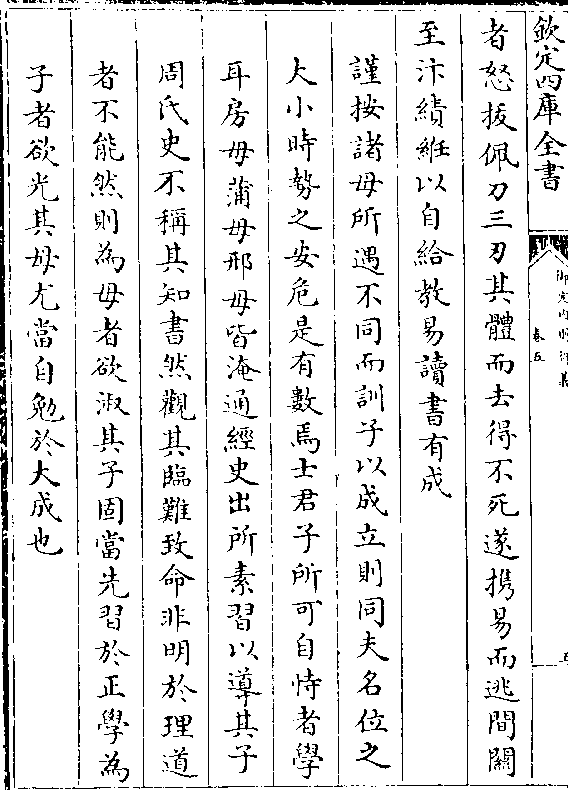 欽定四庫全書
卷五
者怒拔佩刀三刃其體而去得不死遂携易而逃間關
至汴績絍以自給教易讀書有成
謹按諸母所遇不同而訓子以成立則同夫名位之
大小時勢之安危是有數焉士君子所可自恃者學
耳房母蒲母邢母皆淹通經史出所素習以導其子
周氏史不稱其知書然觀其臨難致命非明於理道
者不能然則為母者欲淑其子固當先習於正學為
子者欲光其母尤當自勉於大成也